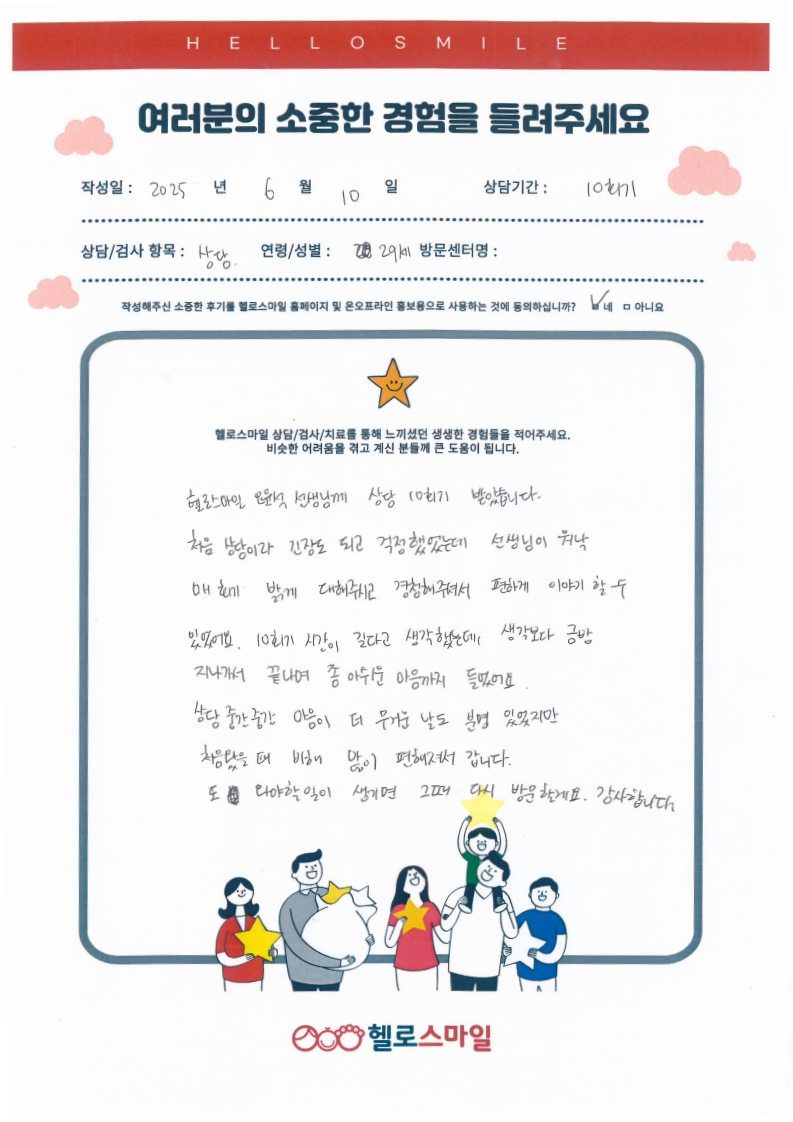 HELLOSMILE
여러분의 소중한 경험을 들려주세요
작성일 : 2025 년 6 월 10 일 상담기간 : 10회기
상담/검사 항목 : 상담. 연령/성별 : 29세 방문센터명 :
작성해주신 소중한 후기를 헬로스마일 홈페이지 및 온오프라인 홍보용으로 사용하는 것에 동의하십니까? 네 아니요
헬로스마일 상담/검사/치료를 통해 느끼셨던 생생한 경험들을 적어주세요.
비슷한 어려움을 겪고 계신 분들께 큰 도움이 됩니다.
헬로스마일 선생님께 상담 10회기 받았습니다.
처음 상담이라 긴장도 되고 걱정했었는데 선생님이 워낙
매 회기 밝게 대해주시고 경청해주셔서 편하게 이야기 할 수
있었어요. 10회기 시간이 길다고 생각했는데, 생각보다 금방
지나가서 끝나며 좀 아쉬운 마음까지 들었어요.
상담 중간중간 마음이 더 무거운 날도 분명 있었지만
처음왔을 때 비해 많이 편해져서 갑니다.
또 와야할 일이 생기면 그때 다시 방문할게요. 감사합니다.
헬로스마일